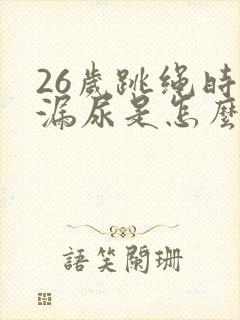 26歲跳绳时
漏尿是怎麽
語笑闌珊